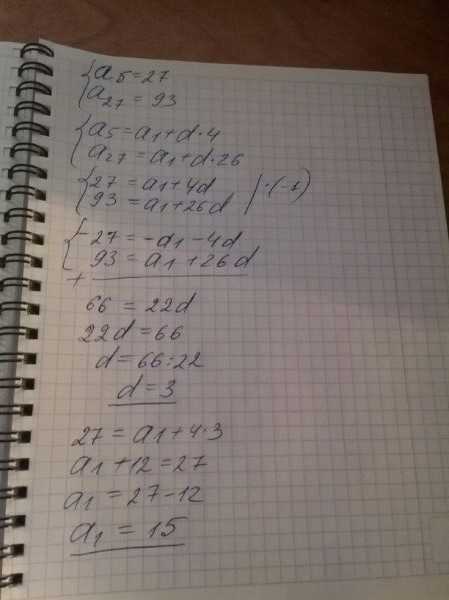 {a5=27
a27=93
{a5=a1+d·4
a27=a1+d·26
{27=a1+4d
93=a1+26d |·(-1)
{-27=-a1-4d
93=a1+26d
+
66=22d
22d=66
d=66:22
d=3
27=a1+4·3
a1+12=27
a1=27-12
a1=15